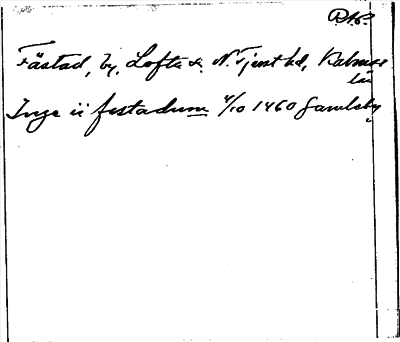 RAp.
Fästad, by, Lofta s. N. Tjust hd, Kalmar
län
Inge ii festadum 4/10 1460 Gamlsby